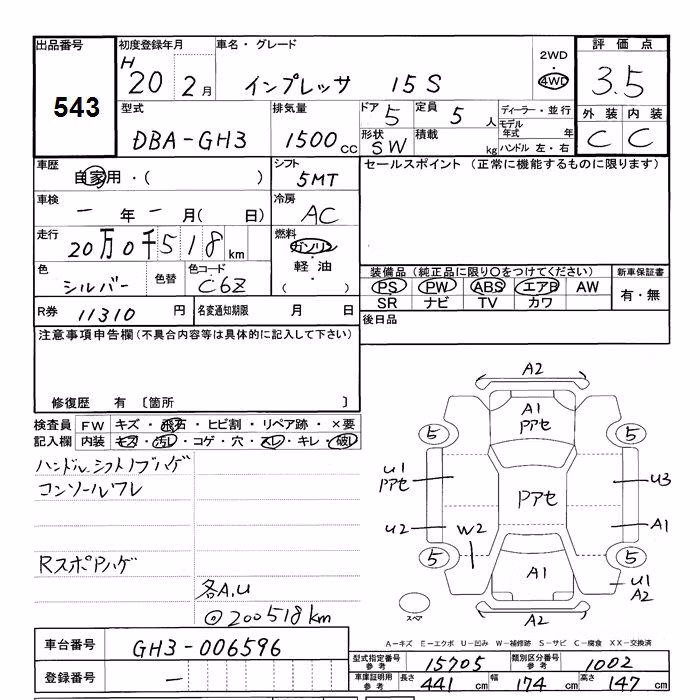 出品番号 初度登録年月 車名・グレード 2WD・4WD 評価点
543 H 20 2月 インプレッサ 15S 3.5
型式 排気量 ドア 5 定員 5人 ディーラー・並行 外装 内装
DBA-GH3 1500cc 形状 SW 積載 kg モデル年式 年 C C
ハンドル 左・右
車歴 自家用・( ) シフト 5MT セールスポイント (正常に機能するものに限ります)
車検 ー年ー月( 日) 冷房 AC
走行 20万0千518km 燃料 ガソリン・軽油・( )
色 シルバー 色替 色コード C6Z 装備品 (純正品に限り○をつけてください) 新車保証書
PS PW ABS エアB AW 有・無
SR ナビ TV カワ
R券 11310円 名変通知期限 月 日 後日品
注意事項申告欄(不具合内容等は具体的に記入して下さい)
修復歴 有 〔箇所 〕
検査員 FW キズ・飛石・ヒビ割・リペア跡・×要
記入欄 内装 キズ・汚レ・コゲ・穴・スレ・キレ・破レ
ハンドル.シフトノブハゲ
コンソールワレ
Rスポアハゲ
各A.U
◎200518km
A2
A1
Pアセ
5 5
U1
Pアセ
Pアセ
U3
U2 W2 A1
5 5
A1
U1
A2
スペア A2
A-キズ E-エクボ U-凹み W-補修跡 S-サビ C-腐食 XX-交換済
車台番号 GH3-006596
登録番号 ー
型式指定番号 参考 15705 類別区分番号 参考 1002
車庫証明用 参考 長さ 441cm 幅 174cm 高さ 147cm